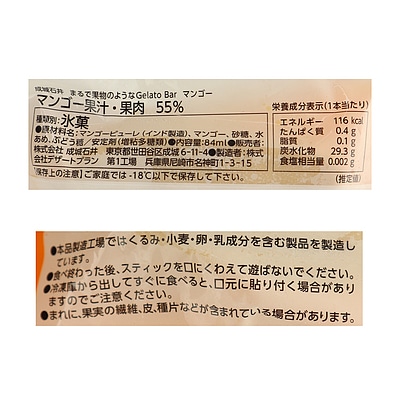 成城石井 まるで果物のようなGelato Bar マンゴー
マンゴー果汁・果肉 55%
種類別:氷菓
●原材料名:マンゴーピューレ(インド製造)、マンゴー、砂糖、水
あめ、ぶどう糖/安定剤(増粘多糖類)●内容量:84ml●販売者:
株式会社 成城石井 東京都世田谷区成城6-11-4●製造者:株式
会社デザートプラン 第1工場 兵庫県尼崎市名神町1-3-15
〈保存上の注意〉ご家庭では-18℃以下で保存して下さい。
栄養成分表示(1本当たり)
エネルギー 116 kcal
たんぱく質 0.4 g
脂質 0.1 g
炭水化物 29.3 g
食塩相当量 0.002 g
(推定値)
●本品製造工場ではくるみ・小麦・卵・乳成分を含む製品を製造し
ています。
●食べ終わった後、スティックを口にくわえて遊ばないでください。
●冷凍庫から出してすぐに食べると、口元に貼り付く場合があり
ますのでご注意ください。
●まれに、果実の繊維、皮、種片などが含まれている場合があります。